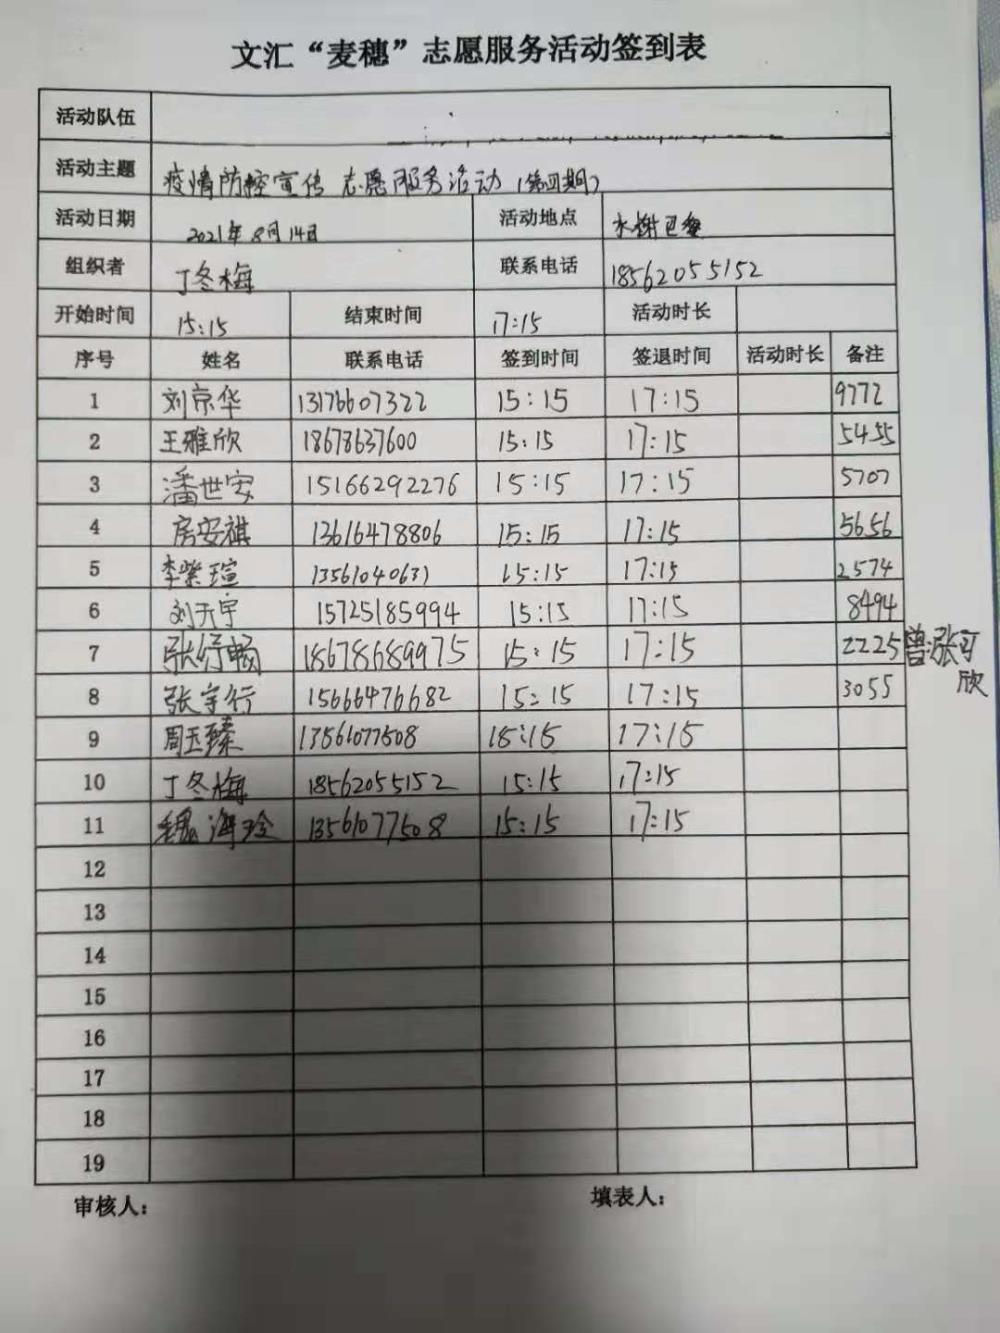 文汇“麦穗”志愿服务活动签到表
活动队伍
活动主题 疫情防控宣传 志愿服务活动（第四期）
活动日期 2021年8月14日 活动地点 水榭巴黎
组织者 丁冬梅 联系电话 18562055152
开始时间 15:15 结束时间 17:15 活动时长
序号 姓名 联系电话 签到时间 签退时间 活动时长 备注
1 刘京华 13176607322 15:15 17:15 9772
2 王雅欣 18678637600 15:15 17:15 5455
3 潘世安 15166292276 15:15 17:15 5707
4 房安祺 13616478806 15:15 17:15 5656
5 李紫瑄 13561040631 15:15 17:15 2574
6 刘天宇 15725185994 15:15 17:15 8494
7 张纾畅 18678689975 15:15 17:15 2225 曾:张可欣
8 张宇行 15666476682 15:15 17:15 3055
9 周玉臻 13561077508 15:15 17:15
10 丁冬梅 18562055152 15:15 17:15
11 魏海玲 13561077508 15:15 17:15
12
13
14
15
16
17
18
19
审核人： 填表人：